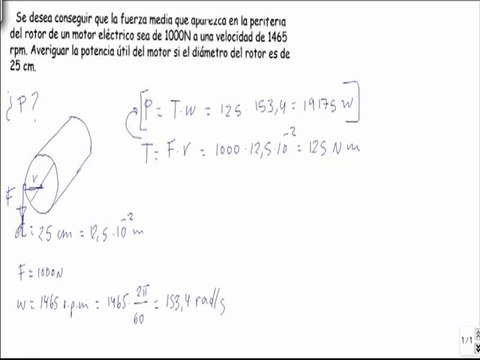 Se desea conseguir que la fuerza media que aparezca en la periferia
del rotor de un motor eléctrico sea de 1000N a una velocidad de 1465
rpm. Averiguar la potencia útil del motor si el diámetro del rotor es de
25 cm.
¿P?
[P = T·w = 125 · 153,4 = 19175 w]
T = F·r = 1000·12,5·10^-2 = 125 N·m
r
F
d = 25 cm = 12,5·10^-2 m
F = 1000N
w = 1465 r.p.m = 1465 · 2π/60 = 153,4 rad/s
1/1